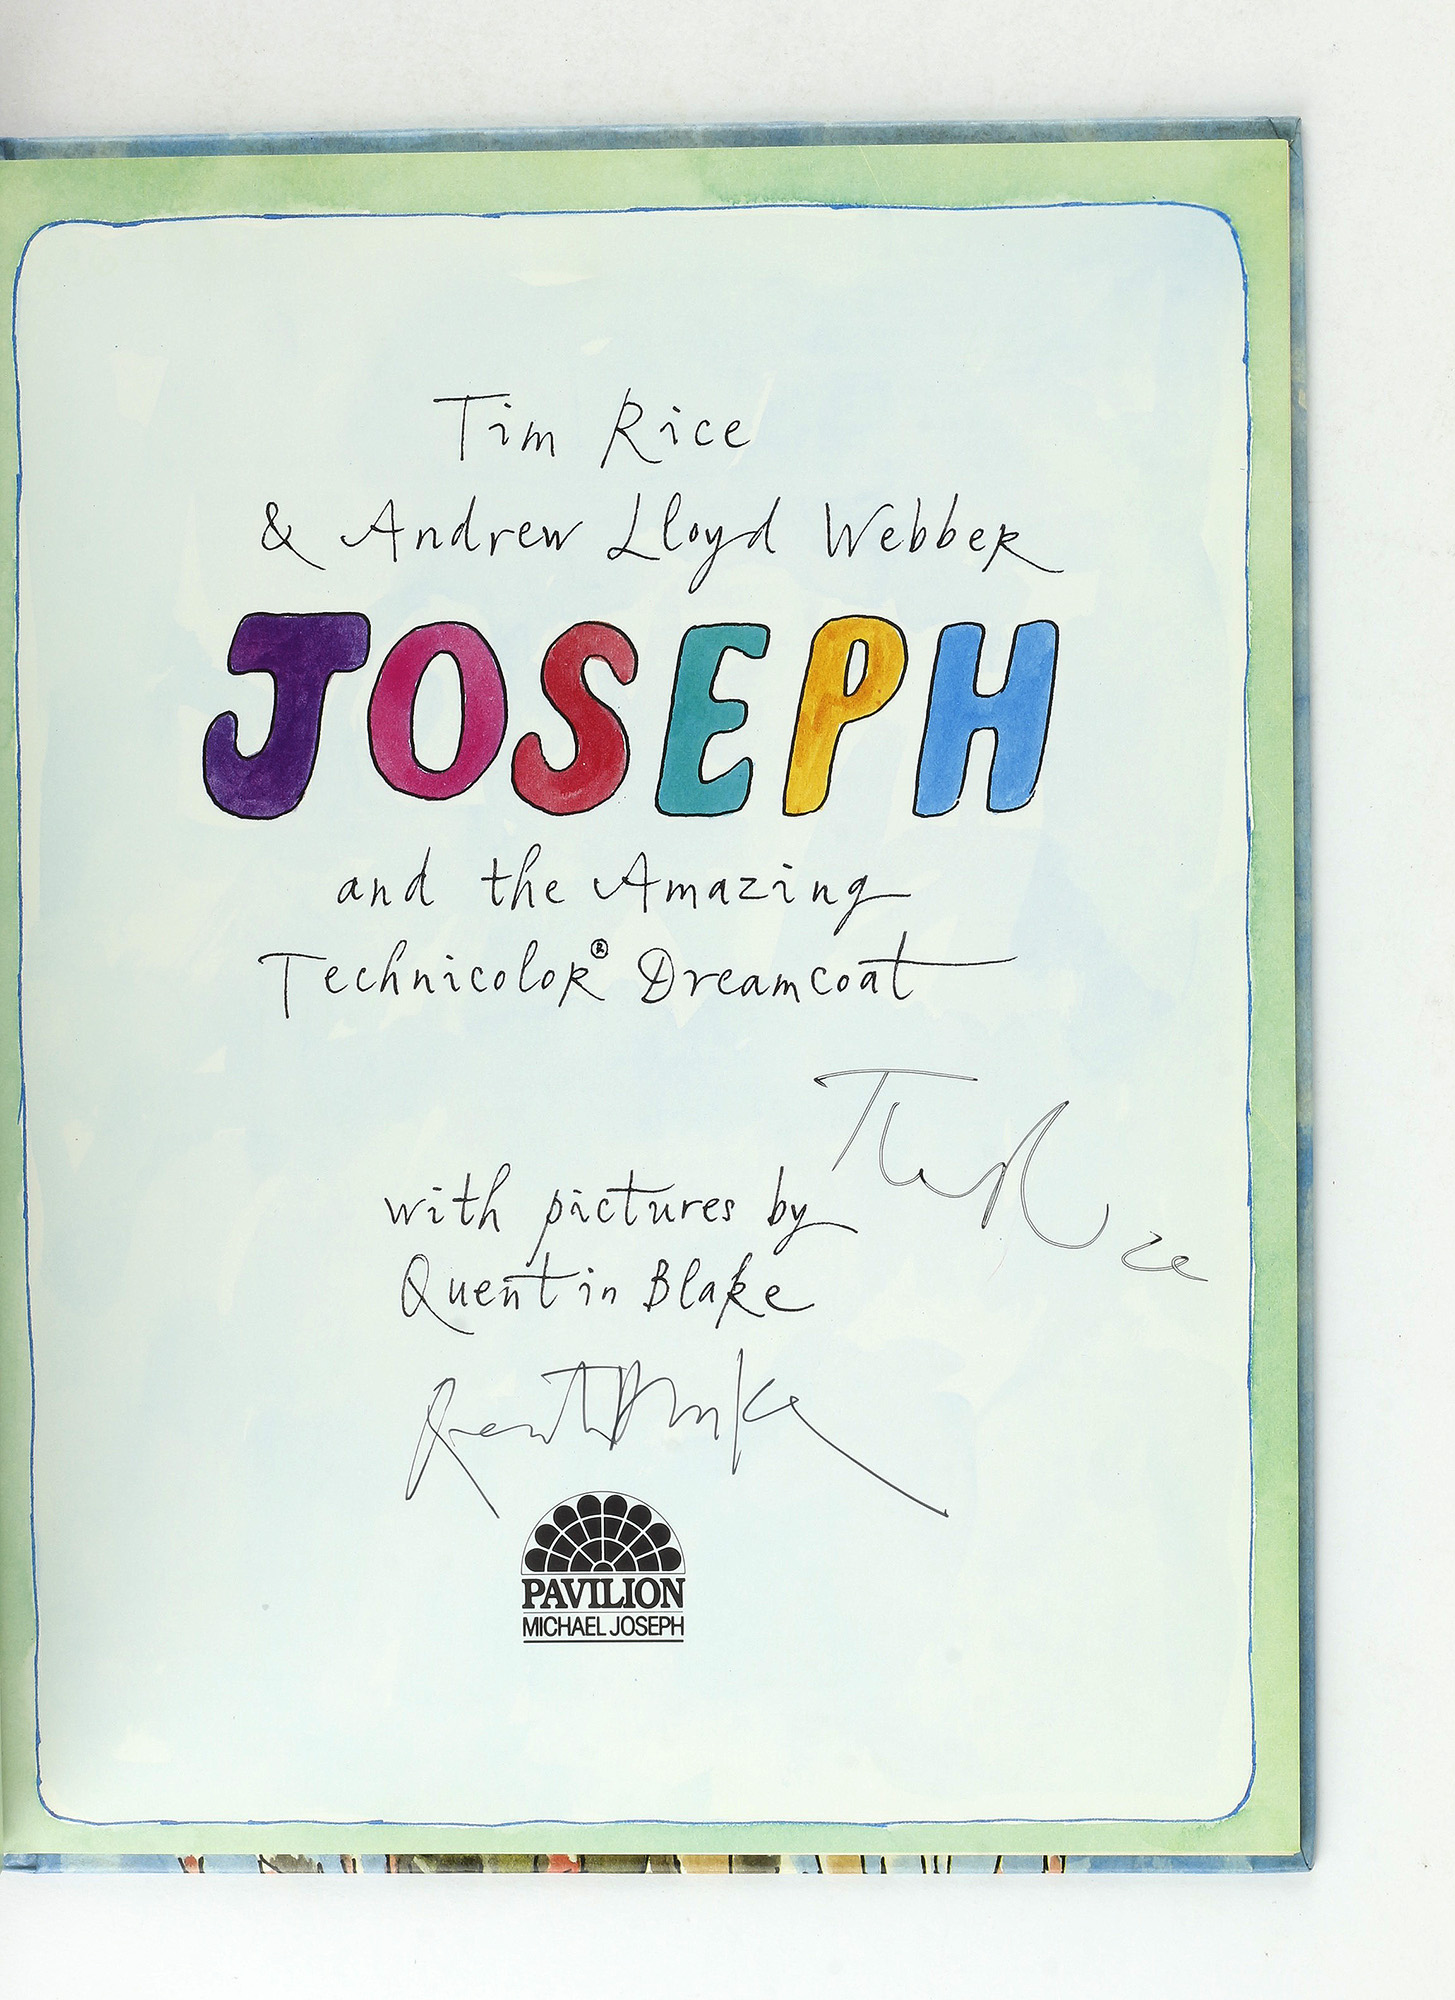 Tim Rice
& Andrew Lloyd Webber
JOSEPH
and the Amazing
Technicolor® Dreamcoat
with pictures by
Quentin Blake
PAVILION
MICHAEL JOSEPH